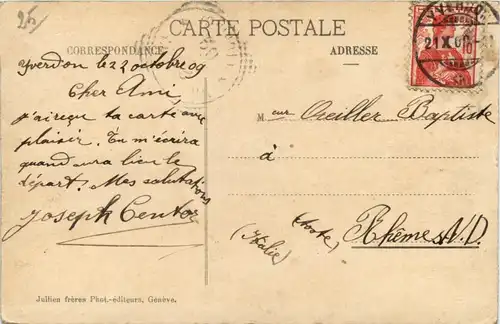 25
CARTE POSTALE
CORRESPONDANCE
ADRESSE
YVERDON
21 X 09
10
Yverdon le 22 octobre 09
Cher Ami,
J'ai reçu ta carte avec
plaisir. Tu m'écrira
quand aura lieu le
départ. Mes salutations
Joseph
M eur Oreiller Baptiste
à
(poste) Rhêmes N.D.
(Italie)
Jullien frères Phot.-éditeurs, Genève.